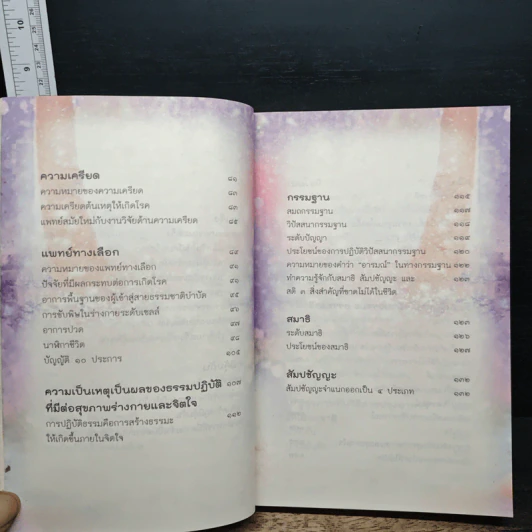 10
9
ความเครียด ๘๑
ความหมายของความเครียด ๘๓
ความเครียดต้นเหตุให้เกิดโรค ๘๓
แพทย์สมัยใหม่กับงานวิจัยด้านความเครียด ๘๕
แพทย์ทางเลือก
ความหมายของแพทย์ทางเลือก ๙๑
ปัจจัยที่มีผลกระทบต่อการเกิดโรค
อาการพื้นฐานของผู้เข้าสู่สายธรรมชาติบำบัด ๙๕
การขับพิษในร่างกายระดับเซลล์
อาการปวด ๙๗
นาฬิกาชีวิต ๙๘
บัญญัติ ๑๐ ประการ ๑๐๕
ความเป็นเหตุเป็นผลของธรรมปฏิบัติ ๑๐๗
ที่มีต่อสุขภาพร่างกายและจิตใจ
การปฏิบัติธรรมคือการสร้างธรรมะ ๑๑๒
ให้เกิดขึ้นภายในจิตใจ
กรรมฐาน ๑๑๕
สมถกรรมฐาน ๑๑๗
วิปัสสนากรรมฐาน ๑๑๘
ระดับปัญญา ๑๑๙
ประโยชน์ของการปฏิบัติวิปัสสนากรรมฐาน ๑๒๐
ความหมายของคำว่า "อารมณ์" ในทางกรรมฐาน ๑๒๒
ทำความรู้จักกับสมาธิ สัมปชัญญะ และ ๑๒๓
สติ ๓ สิ่งสำคัญที่ขาดไม่ได้ในชีวิต
สมาธิ ๑๒๓
ระดับสมาธิ ๑๒๖
ประโยชน์ของสมาธิ ๑๒๗
สัมปชัญญะ ๑๓๒
สัมปชัญญะจำแนกออกเป็น ๔ ประเภท ๑๓๒